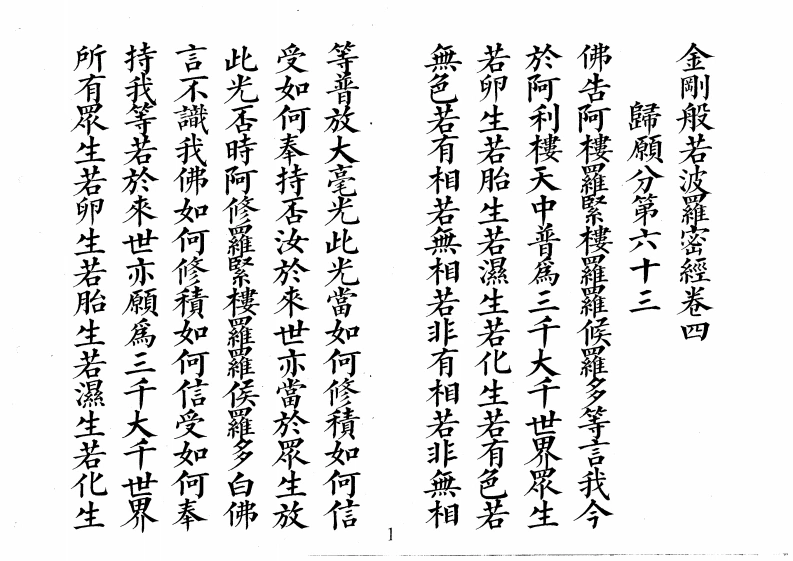 金剛般若波羅密經卷四
歸願分第六十三
佛告阿樓羅緊樓羅羅候羅多等言我今
於阿利樓天中普為三千大千世界眾生
若卵生若胎生若濕生若化生若有色若
無色若有相若無相若非有相若非無相
等普放大毫光此光當如何修積如何信
受如何奉持否汝於來世亦當於眾生放
此光否時阿修羅緊樓羅羅侯羅多白佛
言不識我佛如何修積如何信受如何奉
持我等若於來世亦願為三千大千世界
所有眾生若卵生若胎生若濕生若化生
1